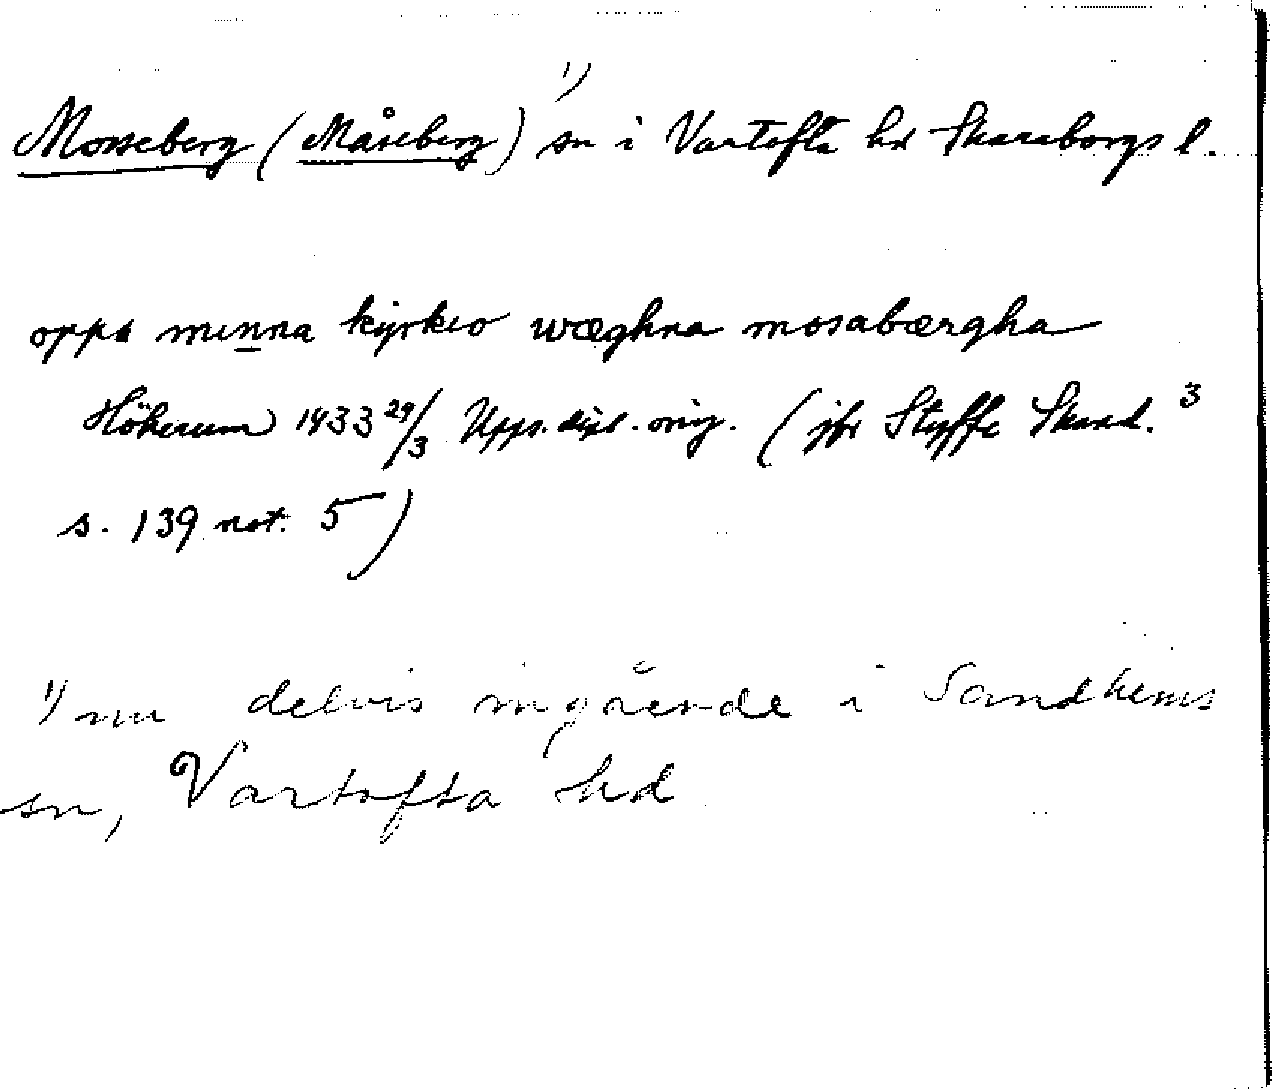 Mosseberg (Måseberg) ¹⁾ sn i Vartofta hd Skaraborgs l.
oppa minna kyrkio wæghna mosabærgha
Hökerum 1433 29/3 Upps. dipl. orig. (jfr Styffe Skand.³
s. 139 not. 5)
¹⁾ nu delvis ingående i Sandhems
sn, Vartofta hd